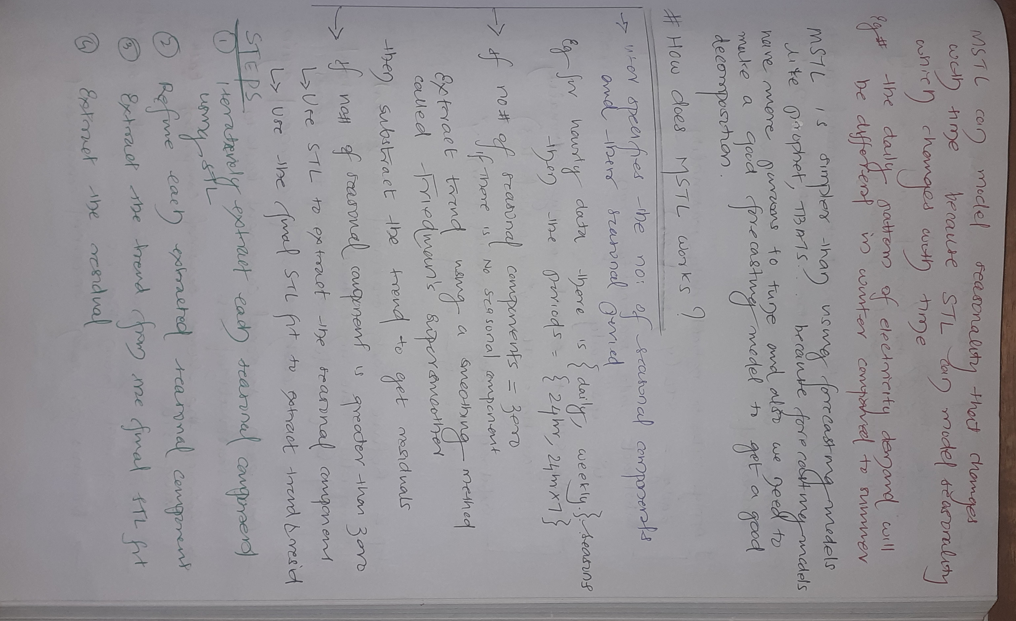 MSTL can model seasonality that changes
with time because STL can model seasonality
which changes with time
Eg# the daily pattern of electricity demand will
be different in winter compared to summer
MSTL is simpler than using forecasting models
like prophet, TBATS. because forecasting models
have more params to tune and also we need to
make a good forecasting model to get a good
decomposition.
# How does MSTL works?
→ user specifies the no: of seasonal components
and there seasonal period
Eg for hourly data there is {daily, weekly} seasons
then the periods = {24hr, 24x7}
→ if no# of seasonal components = zero
if there is no seasonal component
Extract trend using a smoothing method
called Friedman's supersmoother
then substract the trend to get residuals
→ if no# of seasonal component is greater than zero
↳ Use STL to extract the seasonal component
↳ Use the final STL fit to extract trend & resid
STEPS
① iteratively extract each seasonal component
using STL
② Refine each extracted seasonal component
③ extract the trend from the final STL fit
④ extract the residual